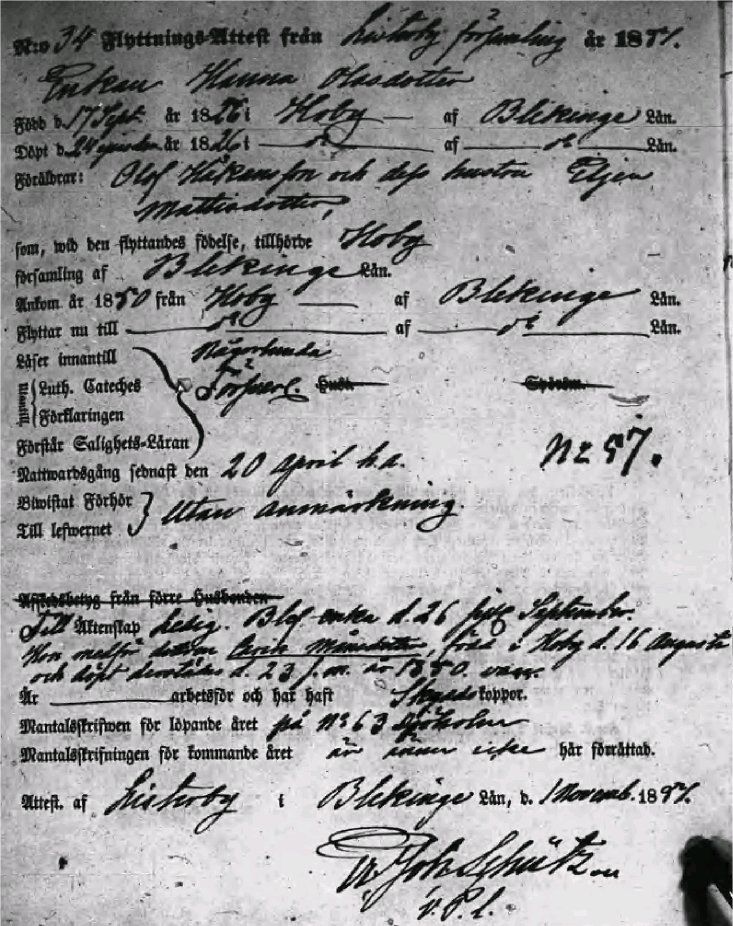 N:o 34 Flyttnings-Attest från Listerby församling år 1857.
Enkan Hanna Olasdotter
Född d. 17 Sept. år 1826 i Hoby af Blekinge Län.
Döpt d. 24 ejusdem år 1826 i d:o af d:o Län.
Föräldrar: Olof Håkansson och dess hustru Eljena
Mattisdotter,
som, wid den flyttandes födelse, tillhörde Hoby
församling af Blekinge Län.
Ankom år 1850 från Hoby af Blekinge Län.
Flyttar nu till d:o af d:o Län.
Läser innantill Någorlunda
Utantill. Luth. Cateches Försvarl. Husb.
Förklaringen
Förstår Salighets-Läran
Nr 57.
Nattwardsgång sednast den 20 April h.a.
Biwistat Förhör Utan anmärkning.
Till lefwernet
Afskedsbetyg från förre Husbonden
Till Äktenskap ledig. Blef enka d. 26 September.
Hon medför dottren Månsdotter, född i Hoby d. 16 Augusti
och döpt derstädes d. 23 s.m. år 1850
Är arbetsför och har haft Skyddskoppor.
Mantalsskrifwen för löpande året på N:o 63 Sjöholm
Mantalsskrifningen för kommande året är ännu icke här förrättad.
Attest. af Listerby i Blekinge Län, d. 1 Novemb. 1857.
Joh Schütz
v. P. l.